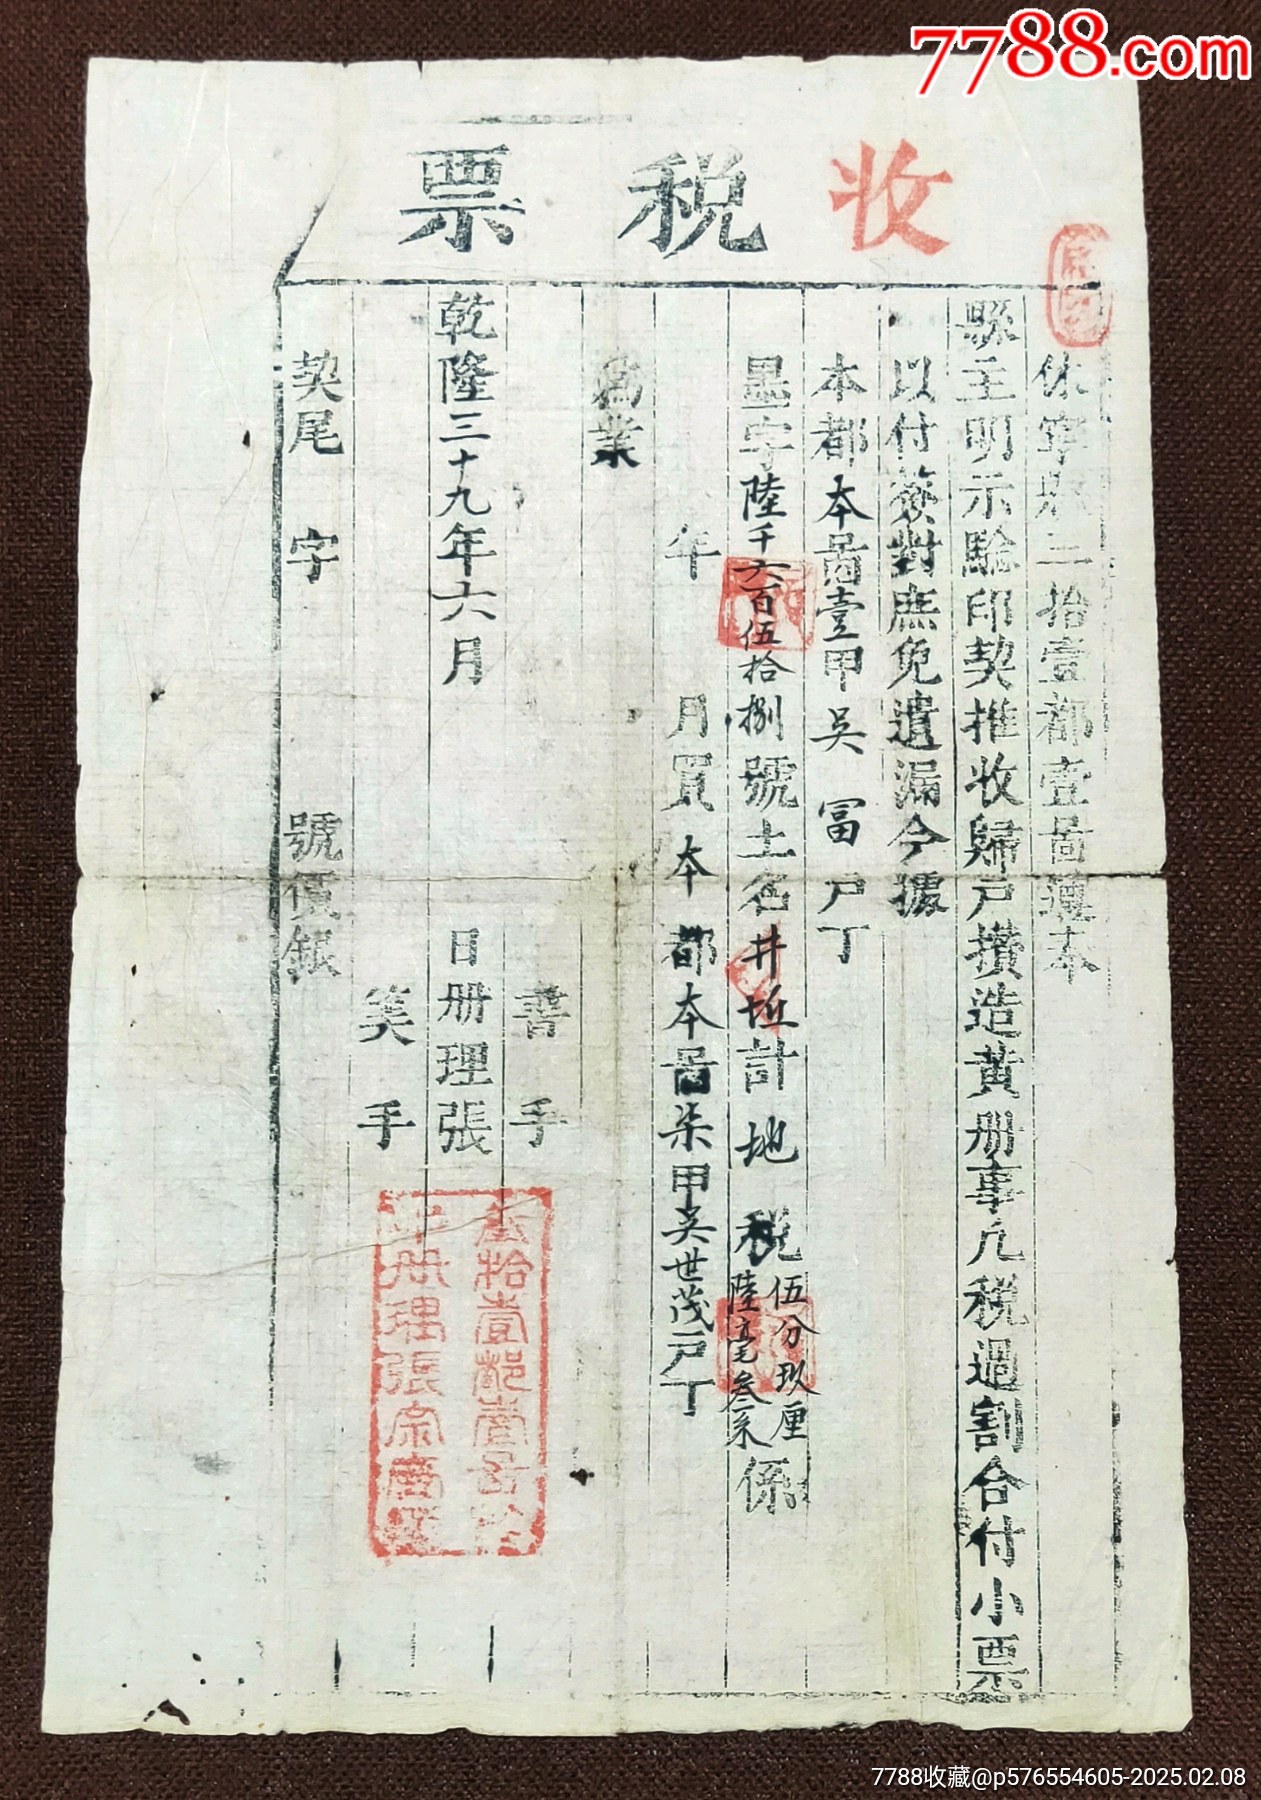 7788.com
收税票
休寧縣二拾壹都壹啚遵奉
縣主明示驗印契推收歸户攢造黄册事凡税過割合付小票
以付簽對庶免遺漏今據
本都本啚壹甲吳富户丁
墨字陸千六百伍拾捌號土名井坵計地税伍分玖厘陸毫叁系係
年月買本都本啚柒甲吳世茂户丁
為業
書手
乾隆三十九年六月日册理張
筭手
契尾字號價銀
拾壹都壹
册理張宗
7788收藏@p576554605-2025.02.08